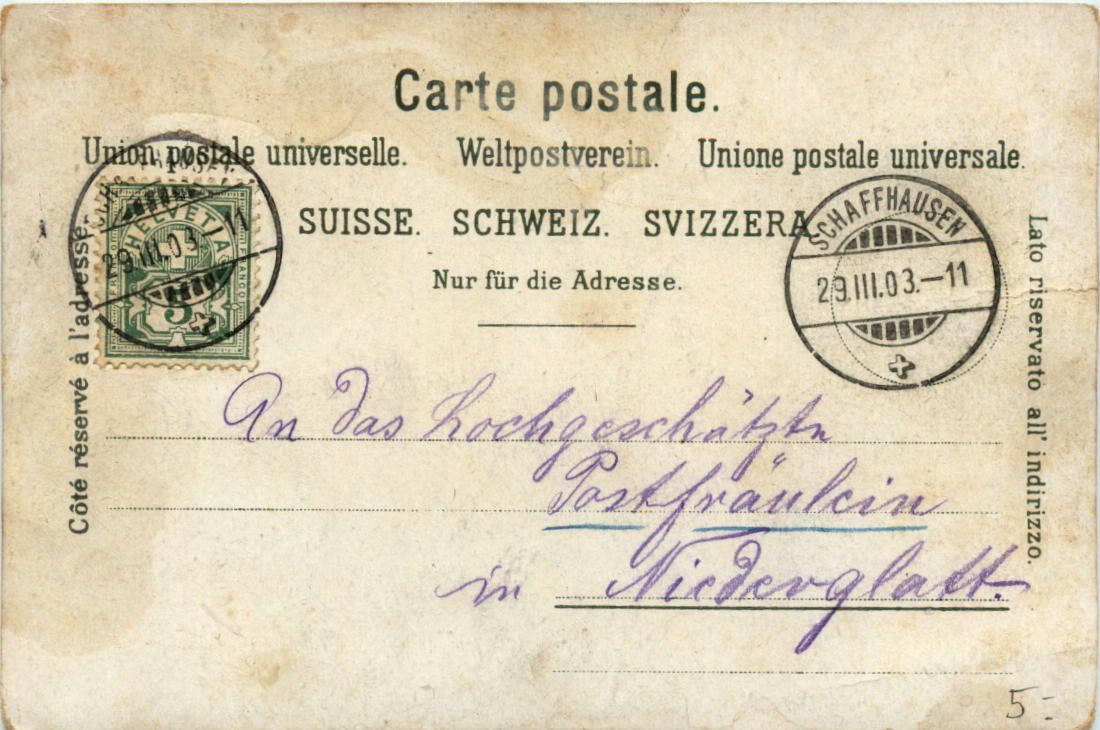 Carte postale.
Union postale universelle. Weltpostverein. Unione postale universale.
SUISSE. SCHWEIZ. SVIZZERA.
Nur für die Adresse.
Côté réservé à l'adresse.
Lato riservato all' indirizzo.
HELVETIA
FRANCO
5
29.III.03.-11
SCHAFFHAUSEN
29.III.03.-11
An das Hochgeschätzte
Postfräulein
in Niederglatt.
5.-